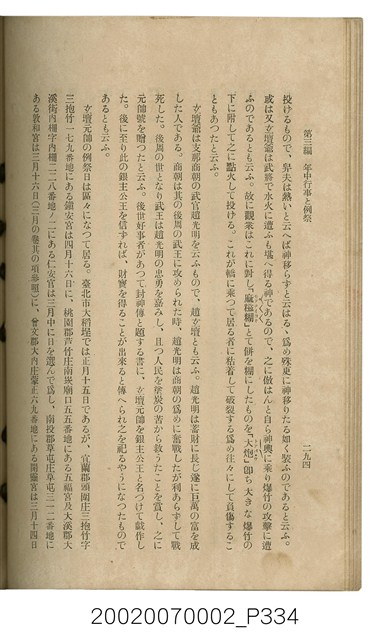 第三編　年中行事と例祭
二九四
投けるもので、舁夫は熱いと云へば神移らずと云はるゝ為め殊更に神移りたる如く装ふのであると云ふ。
或は又玄壇爺は武將で水火に遭ふも堪へ得る神であるので、之に倣はんと自ら神輿に乘り爆竹の攻擊に遭
ふのであるとも云ふ。故に觀衆はこれに對し「麻糍糊」とて餅を糊にしたものを「大炮」卽ち大きな爆竹の
下に附して之に點火して投ける。これが轎に乘つて居る者に粘着して破裂する為め往々にして負傷するこ
ともあつたと云ふ。
玄壇爺は支那商朝の武官趙光明を云ふもので、趙玄壇とも云ふ。趙光明は蓄財に長じ遂に巨萬の富を成
した人である。商朝は其の後周の武王に攻められた時、趙光明は商朝の為めに奮戰したが利あらずして戰
死した。後周の世となり武王は趙光明の忠勇を嘉みし、且つ人民を塗炭の苦から救うたことを賞し、之に
元帥號を贈つたと云ふ。後世好事者があつて封神傳と題する書に、玄壇元帥を銀主公王と名づけて戲作し
た。後に至り此の銀主公王を信ずれば、財寶を得ることが出來ると傳へられ之を記るやうになつたもので
あるとも云ふ。
玄壇元帥の例祭日は區々になつて居る。臺北市大稻埕では正月十五日であるが、宜蘭郡頭圍庄三抱竹字
三抱竹一七九番地にある鎭安宮は四月十六日に、桃園郡蘆竹庄南崁廟口五五番地にある五福宮及大溪郡大
溪街內柵字內柵二二八番地ノ二にある仁安宮は三月中に日を選んで為し、南投郡草屯庄草屯三一二番地に
ある敦和宮は三月十六日（三月の卷其の項參照）に、曾文郡大內庄蒙正六九番地にある開靈宮は三月十四日
20020070002_P334